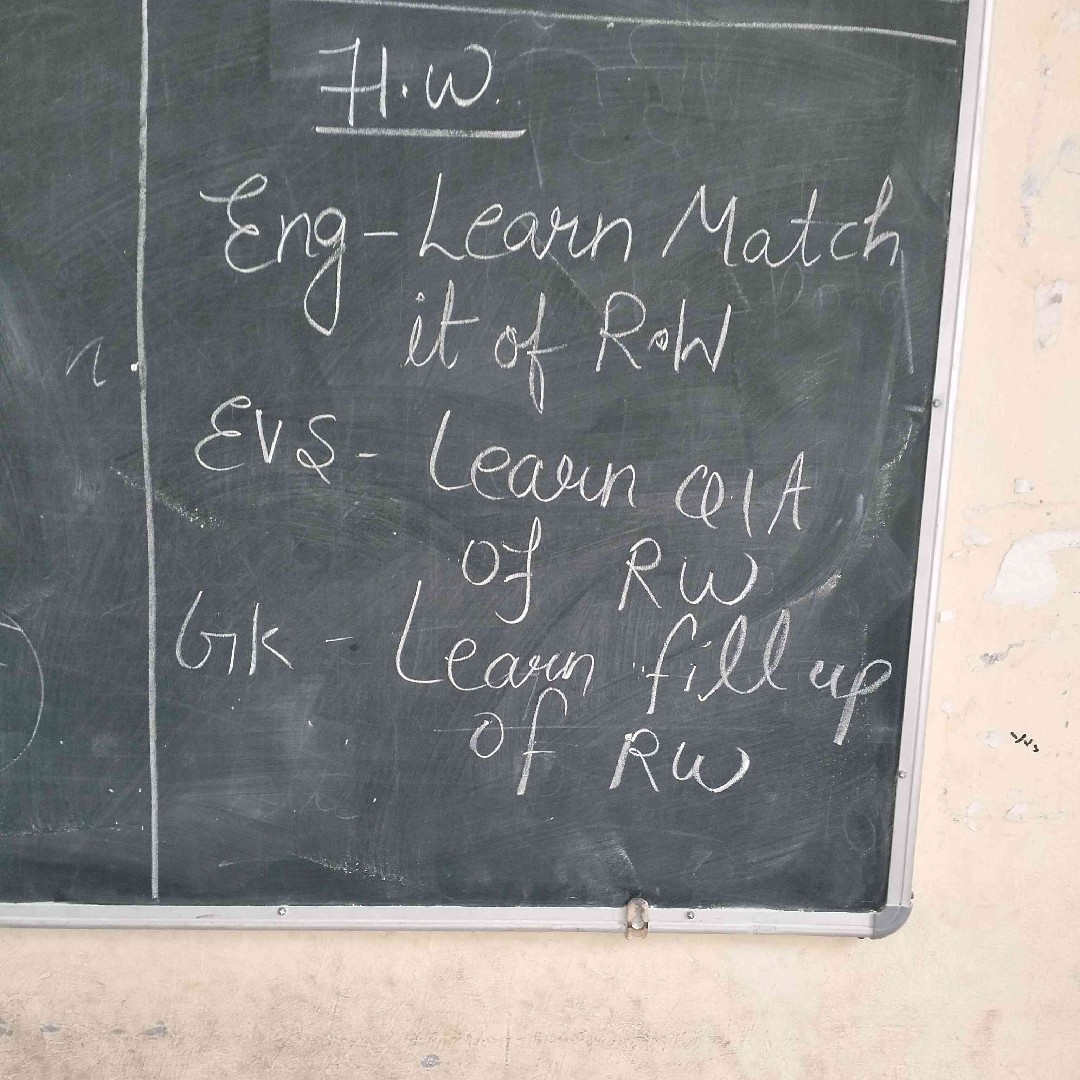 H.W.
Eng - Learn Match
it of R.W
EVS - Learn Q/A
of RW
GK - Learn fill up
of RW
n.